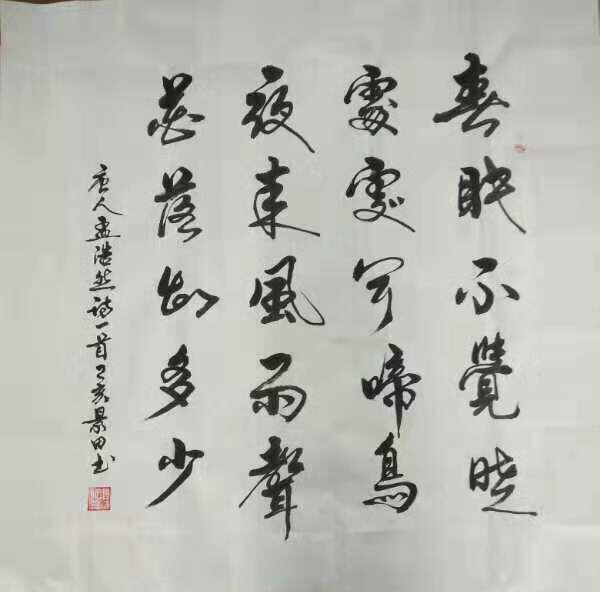 春眠不覺曉
處處聞啼鳥
夜来風雨聲
花落知多少
唐人孟浩然詩一首己亥景田书